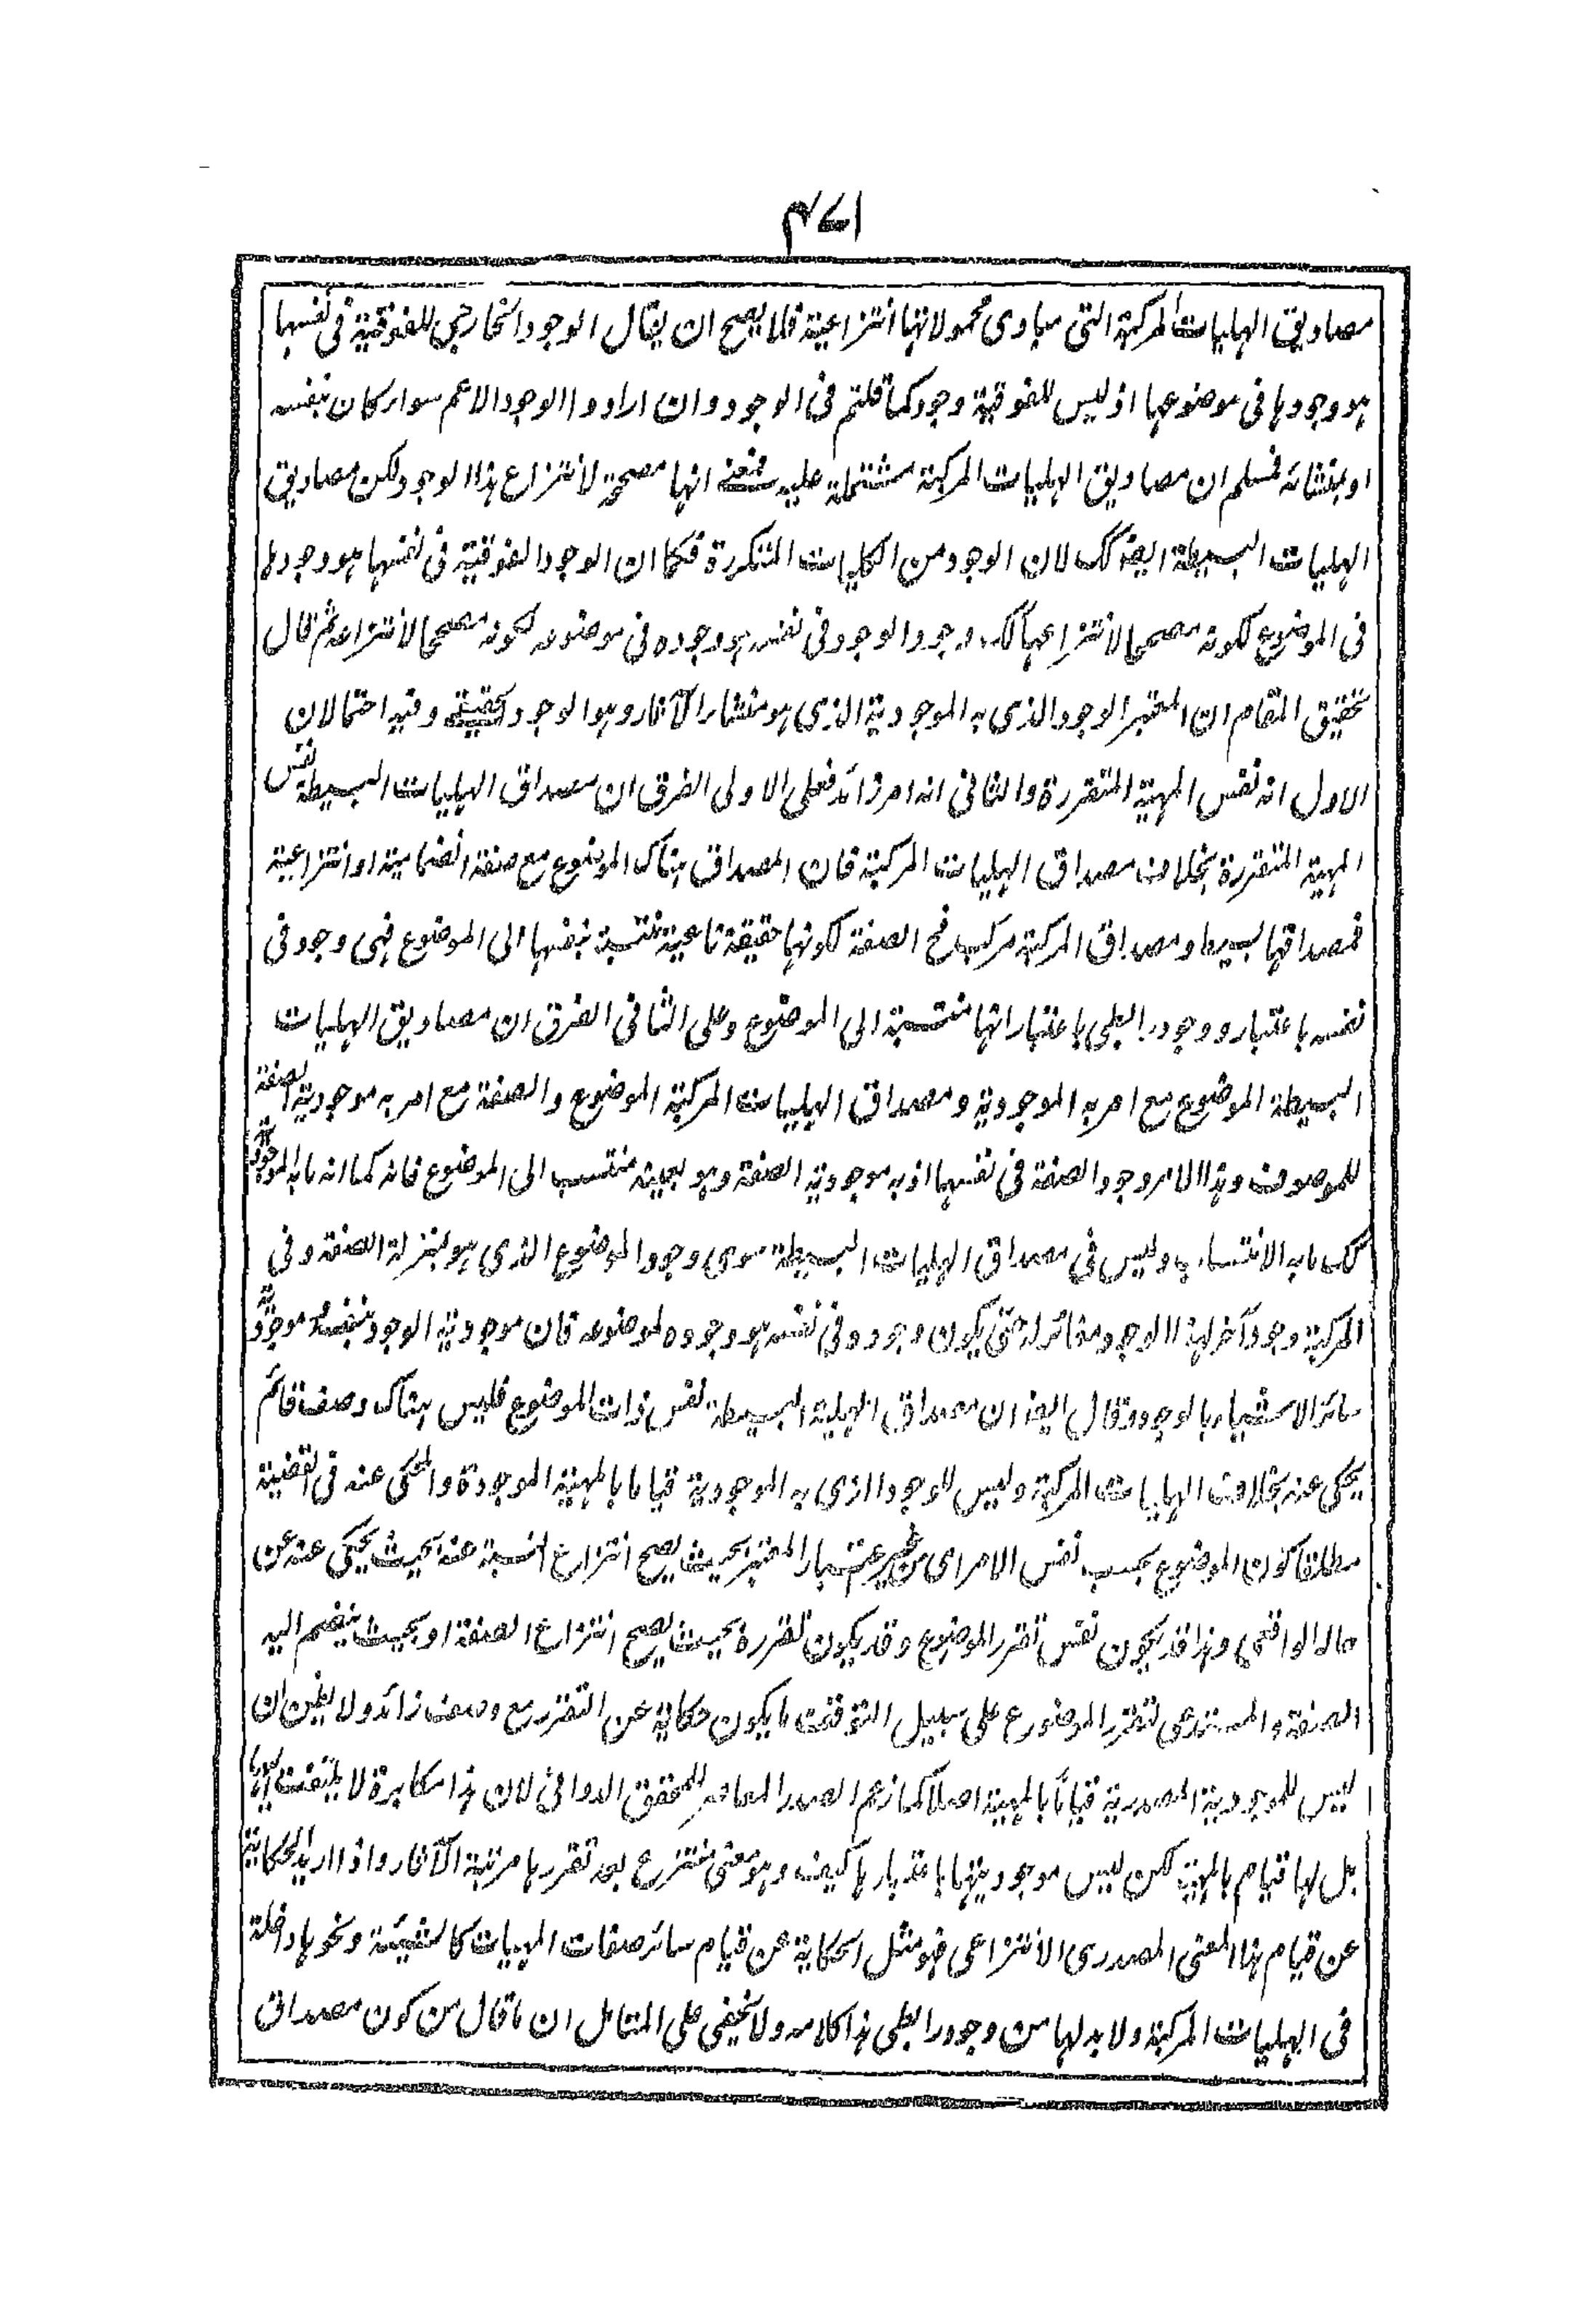 ٤٧١
مصاديق الهليات المركبة التى مبادى محمولاتها انتزاعية فلا يصح ان يقال الوجود الخارجى للفوقية فى نفسها
هو وجودها فى موضوعها اذ ليس للفوقية وجود كما قلتم فى الوجود وان ارادوا الوجود الاعم سواء كان بنفسه
او بمنشائه فمسلم ان مصاديق الهليات المركبة مشتملة عليه بمعنى انها مصححة لانتزاع هذا الوجود لكن مصاديق
الهليات البسيطة ايضا كك لان الوجود من الكليات المتكررة فكما ان الوجود الفوقية فى نفسها هو وجودها
فى الموضوع لكونه مصححا لانتزاعها كك وجود الوجود فى نفسه هو وجوده فى موضوعه لكونه مصححا لانتزاعه ثم قال
تحقيق المقام ان المعتبر الوجود الذى به الموجودية الذى هو منشاء الآثار وهو الوجود الحقيقى وفيه احتمالان
الاول انه نفس المهية المتقررة والثانى انه امر زائد فعلى الاولى الفرق ان مصداق الهليات البسيطة نفس
المهية المتقررة بخلاف مصداق الهليات المركبة فان المصداق هناك الموضوع مع صفة انضمامية او انتزاعية
فمصداقها بسيط ومصداق المركبة مركب فح الصفة لكونها حقيقة ناعتية منتسبة بنفسها الى الموضوع فهى وجود فى
نفسه باعتبار ووجود رابطى باعتبار انها منتسبة الى الموضوع وعلى الثانى الفرق ان مصاديق الهليات
البسيطة الموضوع مع امر به الموجودية ومصداق الهليات المركبة الموضوع والصفة مع امر به موجودية الصفة
للموصوف وهذا الامر وجود الصفة فى نفسها اذ به موجودية الصفة وهو بعينه منتسب الى الموضوع فانه كما انه ما به الموجودية
كك ما به الانتساب وليس فى مصداق الهليات البسيطة سوى وجود الموضوع الذى هو بمنزلة الصفة وفى
المركبة وجود آخر لهذا الوجود مغائر له حتى يكون وجوده فى نفسه هو وجوده لموضوعه فان موجودية الوجود بنفسه موجودية
سائر الاشياء بالوجود وقال ايضا ان مصداق الهلية البسيطة نفس ذات الموضوع فليس هناك وصف قائم
يحكى عنه بخلاف الهليات المركبة وليس للوجود الذى به الموجودية قياما بالمهية الموجودة والمحكى عنه فى القضية
مطلقا كون الموضوع بحسب نفس الامر اى من غير اعتبار المعتبر بحيث يصح انتزاع النسبة عنه بحيث يحكى عنه عن
حاله الواقعى وهذا قد يكون نفس تقرر الموضوع وقد يكون تقرره بحيث يصح انتزاع الصفة او بحيث ينضم اليه
الصفة والمستدعى لتقرر الموضوع على سبيل التوقف ما يكون حكاية عن التقرر مع وصف زائد ولا يظن ان
ليس للموجودية المصدرية قياما بالمهية اصلا كما زعم الصدر المعاصر للمحقق الدوانى لان هذا مكابرة لا يلتفت اليها
بل لها قيام بالمهية لكن ليس موجوديتها باعتبارها كيف وهو معنى منتزع بعد تقررها مرتبة الآثار واذا اريد الحكاية
عن قيام هذا المعنى المصدرى الانتزاعى فهو مثل الحكاية عن قيام سائر صفات المهيات كالشيئة ونحوها داخلة
فى الهليات المركبة ولا بد لها من وجود رابطى هذا كلامه ولا يخفى على المتامل ان ما قال من كون مصداق